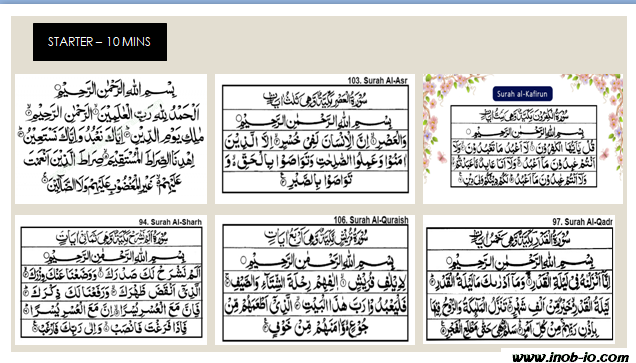 STARTER – 10 MINS
بِسْمِ اللهِ الرَّحْمٰنِ الرَّحِيْمِ
اَلْحَمْدُ لِلّٰهِ رَبِّ الْعٰلَمِيْنَ الرَّحْمٰنِ الرَّحِيْمِ
مٰلِكِ يَوْمِ الدِّيْنِ اِيَّاكَ نَعْبُدُ وَاِيَّاكَ نَسْتَعِيْنُ
اِهْدِنَا الصِّرَاطَ الْمُسْتَقِيْمَ صِرَاطَ الَّذِيْنَ اَنْعَمْتَ
عَلَيْهِمْ غَيْرِ الْمَغْضُوْبِ عَلَيْهِمْ وَلَا الضَّآلِّيْنَ
103. Surah Al-Asr
سُوْرَةُ الْعَصْرِ مَكِّيَّةٌ وَّهِيَ ثَلٰثُ اٰيَاتٍ
بِسْمِ اللهِ الرَّحْمٰنِ الرَّحِيْمِ
وَالْعَصْرِ اِنَّ الْاِنْسَانَ لَفِيْ خُسْرٍ اِلَّا الَّذِيْنَ
اٰمَنُوْا وَعَمِلُوا الصّٰلِحٰتِ وَتَوَاصَوْا بِالْحَقِّ وَ
تَوَاصَوْا بِالصَّبْرِ
Surah al-Kafirun
سُوْرَةُ الْكٰفِرُوْنَ مَكِّيَّةٌ وَّهِيَ سِتُّ اٰيَاتٍ
بِسْمِ اللهِ الرَّحْمٰنِ الرَّحِيْمِ
قُلْ يٰۤاَيُّهَا الْكٰفِرُوْنَ لَاۤ اَعْبُدُ مَا تَعْبُدُوْنَ وَلَاۤ
اَنْتُمْ عٰبِدُوْنَ مَاۤ اَعْبُدُ وَلَاۤ اَنَا عَابِدٌ مَّا عَبَدْتُّمْ
وَلَاۤ اَنْتُمْ عٰبِدُوْنَ مَاۤ اَعْبُدُ لَكُمْ دِيْنُكُمْ وَلِيَ دِيْنِ
94. Surah Al-Sharh
سُوْرَةُ اَلَمْ نَشْرَحْ مَكِّيَّةٌ وَّهِيَ ثَمَانِيْ اٰيَاتٍ
بِسْمِ اللهِ الرَّحْمٰنِ الرَّحِيْمِ
اَلَمْ نَشْرَحْ لَكَ صَدْرَكَ وَوَضَعْنَا عَنْكَ وِزْرَكَ
الَّذِيْۤ اَنْقَضَ ظَهْرَكَ وَرَفَعْنَا لَكَ ذِكْرَكَ
فَاِنَّ مَعَ الْعُسْرِ يُسْرًا اِنَّ مَعَ الْعُسْرِ يُسْرًا
فَاِذَا فَرَغْتَ فَانْصَبْ وَاِلٰى رَبِّكَ فَارْغَبْ
106. Surah Al-Quraish
سُوْرَةُ قُرَيْشٍ مَكِّيَّةٌ وَّهِيَ اَرْبَعُ اٰيَاتٍ
بِسْمِ اللهِ الرَّحْمٰنِ الرَّحِيْمِ
لِاِيْلٰفِ قُرَيْشٍ اٖلٰفِهِمْ رِحْلَةَ الشِّتَآءِ وَالصَّيْفِ
فَلْيَعْبُدُوْا رَبَّ هٰذَا الْبَيْتِ الَّذِيْۤ اَطْعَمَهُمْ مِّنْ
جُوْعٍ وَّاٰمَنَهُمْ مِّنْ خَوْفٍ
97. Surah Al-Qadr
سُوْرَةُ الْقَدْرِ مَكِّيَّةٌ وَّهِيَ خَمْسُ اٰيَاتٍ
بِسْمِ اللهِ الرَّحْمٰنِ الرَّحِيْمِ
اِنَّاۤ اَنْزَلْنٰهُ فِيْ لَيْلَةِ الْقَدْرِ وَمَاۤ اَدْرٰىكَ مَا لَيْلَةُ الْقَدْرِ
لَيْلَةُ الْقَدْرِ خَيْرٌ مِّنْ اَلْفِ شَهْرٍ تَنَزَّلُ الْمَلٰٓئِكَةُ وَالرُّوْحُ فِيْهَا
بِاِذْنِ رَبِّهِمْ مِّنْ كُلِّ اَمْرٍ سَلٰمٌ هِيَ حَتّٰى مَطْلَعِ الْفَجْرِ
www.inob-io.com